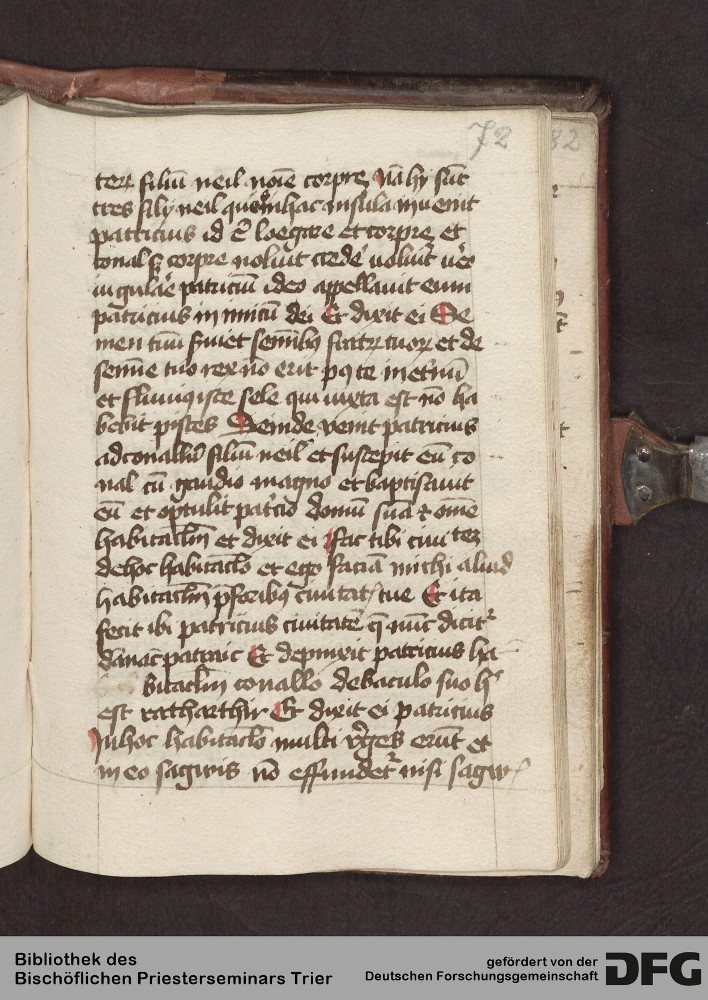 72 82
terꝝ filiū neil noīe corpre nā hy sūt
tres filij neil quos in hac insula inuenit
patricius id ē loegwe et corpre et
conal sꝫ corpre noluit crede' uoluit u'o
iugulāe patriciū ideo appellauit eum
patricius inimicū dei Et dixit ei Se
men tuū seruiet semībꝯ fratrꝝ tuoꝝ et de
semīe tuo rex nō erit pꝯ te in et'nū
et fluuiꝯ iste sele qui iuxta est nō ha
bebit pisces Deinde venit patricius
ad conallū filiū neil et suscepit eū co
nal cū gaudio magno et baptisauit
eū et optulit pat'cio domū suā ⁊ om̄e
habitac̄lm et dixit ei fac tibi ciuitatē
de hoc habitac̄lo et ego faciā michi aliud
habitac̄lm p̄ foribꝯ ciuitat' tue Et ita
fecit ibi patricius ciuitatē q̄ nūc dicit'
dānacpatraic Et depinxit patricius ha
bitac̄lm conallo de baculo suo h'
est ratharthir Et dixit ei patricius
In hoc habitac̄lo multi reges erūt et
in eo sagwis nō effundet' nisi sagw'
Bibliothek des
Bischöflichen Priesterseminars Trier
gefördert von der
Deutschen Forschungsgemeinschaft DFG